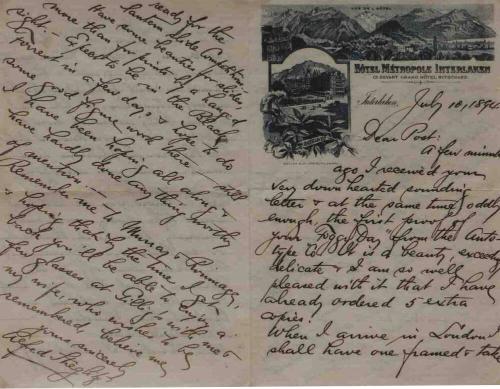 VUE DE L'HÔTEL
HÔTEL MÉTROPOLE INTERLAKEN
CI-DEVANT GRAND HÔTEL RITSCHARD
Interlaken, July 10, 189
Dear Post:
A few minutes
ago I received your
very down hearted sounding
letter & at the same time, oddly
enough, the first proof of
your "Foggy Day" from the Auto-
type Co. It is a beauty,
delicate & I am so well
pleased with it that I have
already ordered 5 extra
copies.
When I arrive in London I
shall have one framed & take
ready for the
Lantern Slide Competition.
Have some beautiful slides,
more than for prints to hang
right. — Expect to be in the Black
Forrest in a few days & hope to do
some good time work there — still
I have been hoping all along &
have hardly done anything worthy
of mention. —
Remember me to Murray &
hoping that by the time I get
back you'll be able to enjoy a
few glasses at with me &
my wife who wishes to be
remembered, believe me
yours sincerely
Alfred Stieglitz